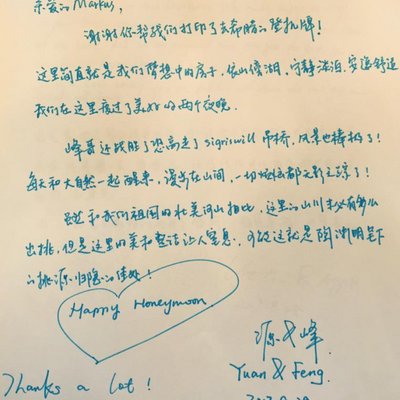 亲爱的Markus,
谢谢你帮我们打印了去希腊的登机牌!
这里简直就是我们梦想中的房子,依山傍湖,宁静淡泊,安逸舒适
我们在这里度过了美好的两个夜晚.
峰哥还战胜了恐高走了sigriswill吊桥,风景也棒极了!
每天和大自然一起醒来,漫步在山间,一切烦恼都无影无踪了!
虽然和我们祖国的壮美河山相比,这里的山川未必有多么
出挑,但是这里的美和整洁让人窒息.可能这就是陶渊明笔下
的桃源归隐的佳处!
Happy Honeymoon
源&峰
Yuan & Feng.
Thanks a lot!